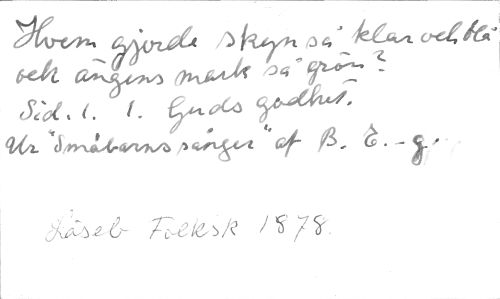 Hvem gjorde skyn så klar och blå
och ängens mark så grön?
Sid. 1. 1. Guds godhet.
Ur "Småbarnssånger" af B. E.-g.
Läseb Folksk 1878.